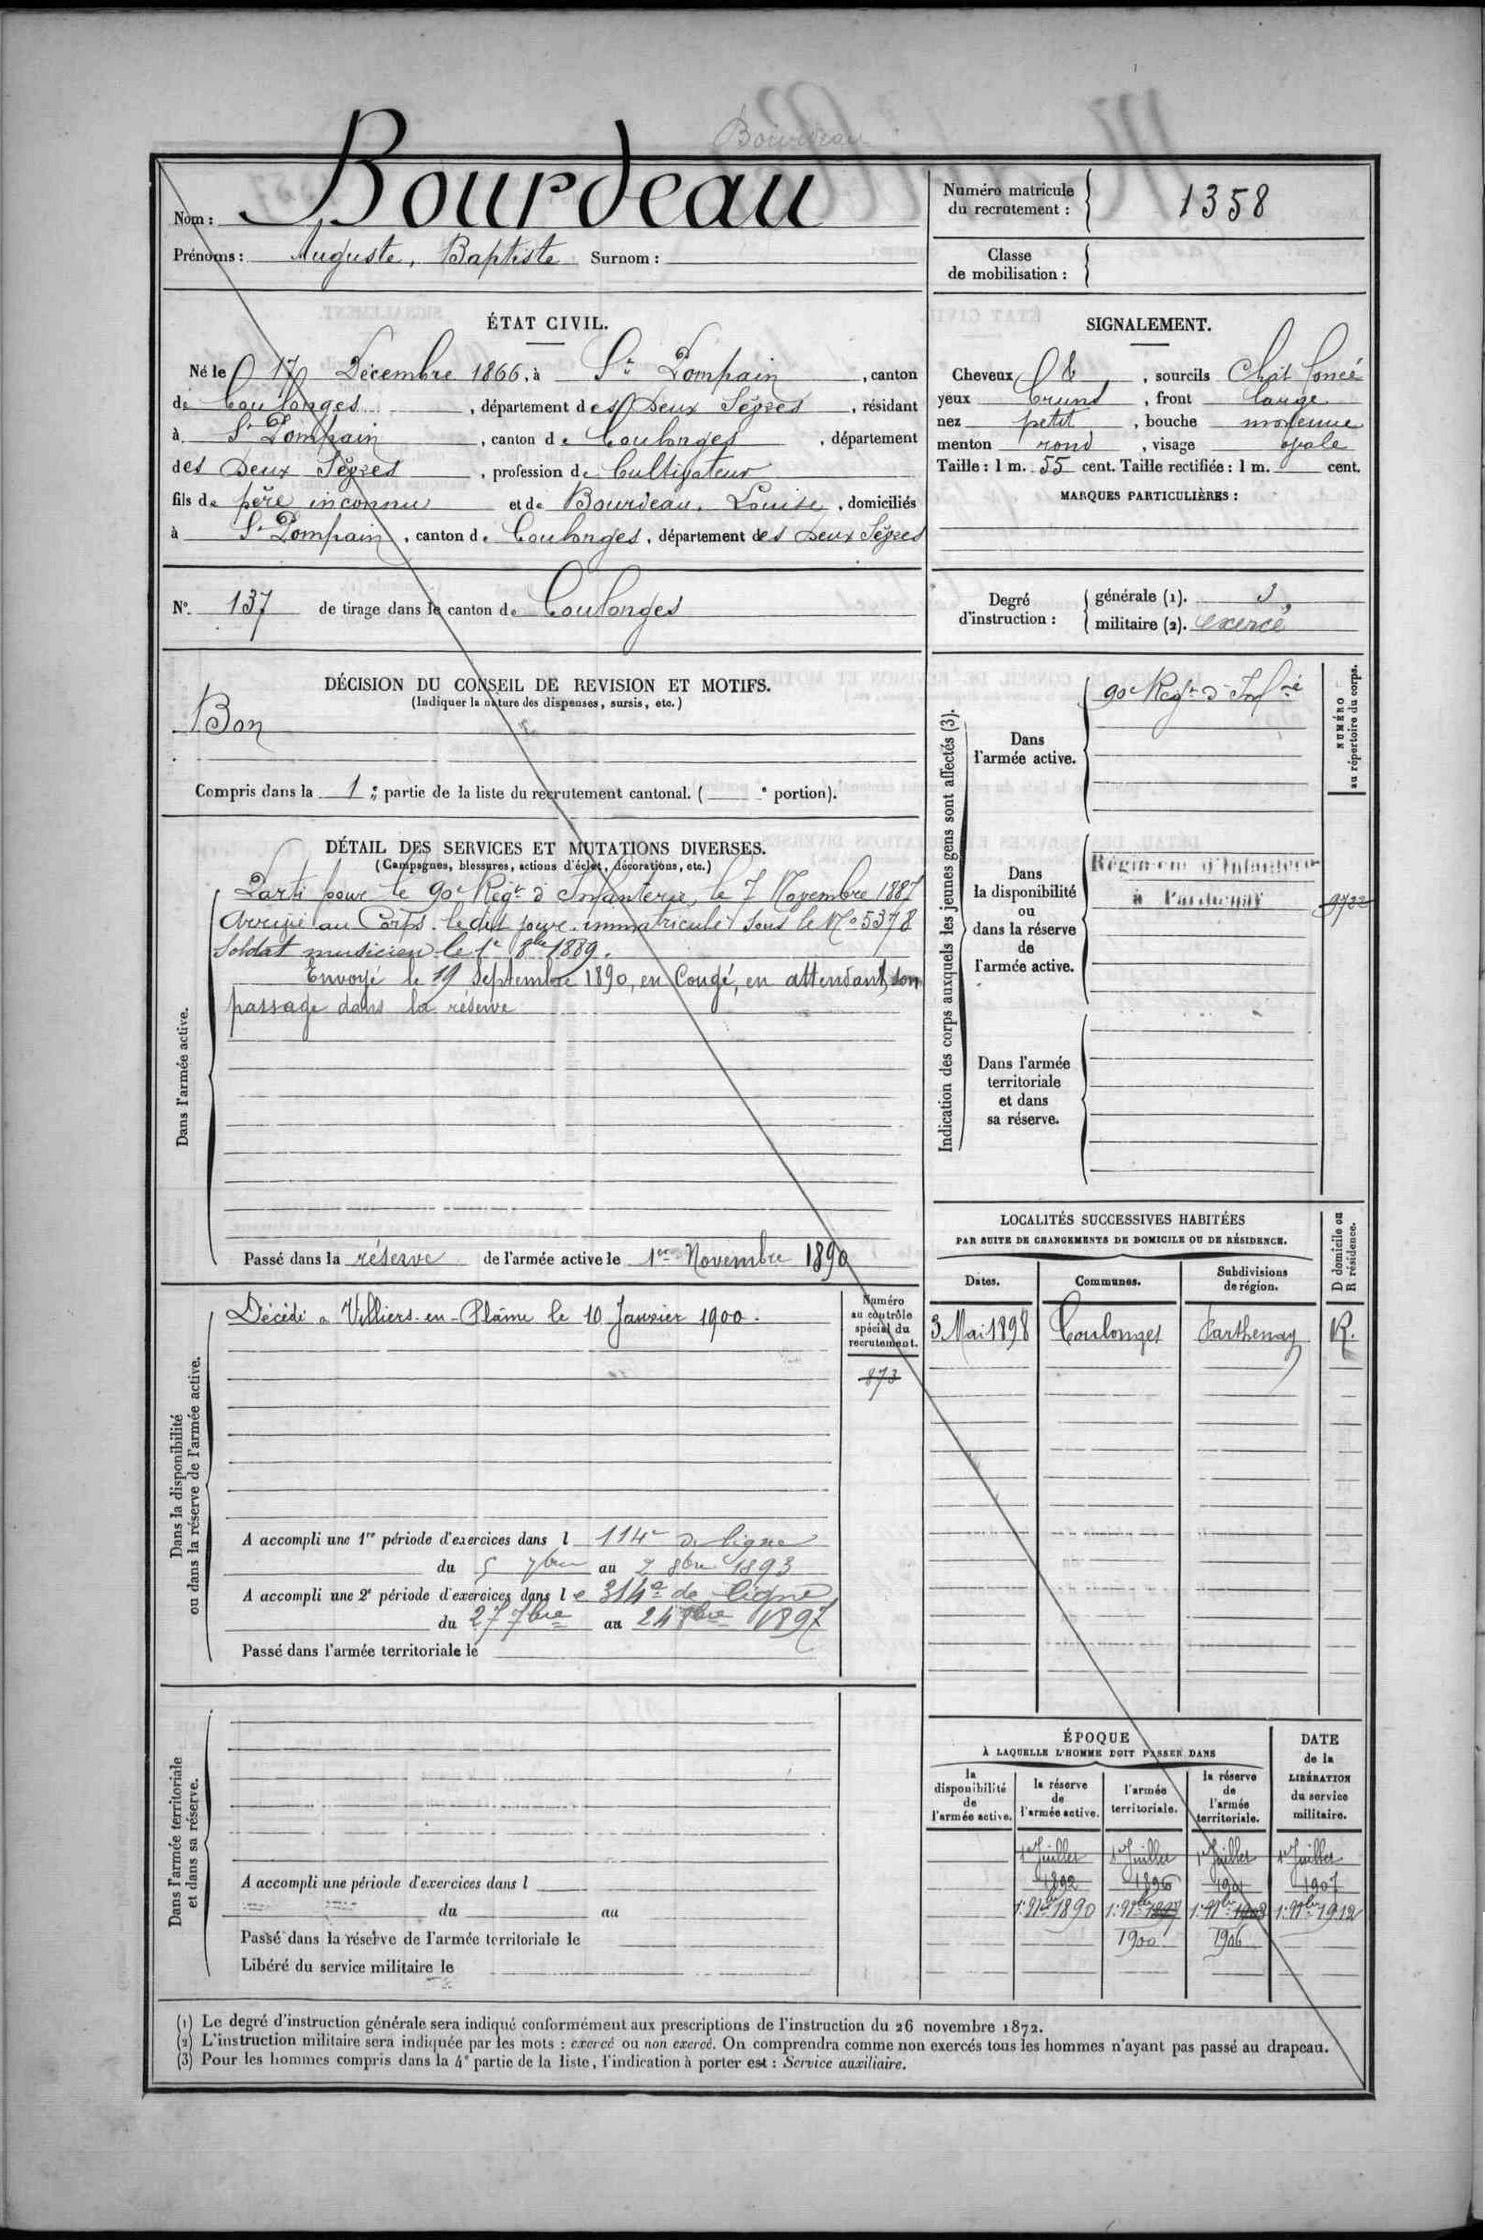 Bourdeau
Nom : Bourdeau
Prénoms : Auguste, Baptiste Surnom :
Numéro matricule du recrutement : 1358
Classe de mobilisation :
ÉTAT CIVIL.
Né le 17 Décembre 1866, à St Pompain, canton
de Coulonges, département des Deux Sèvres, résidant
à St Pompain, canton de Coulonges, département
des Deux Sèvres, profession de Cultivateur
fils de père inconnu et de Bourdeau, Louise, domiciliés
à St Pompain, canton de Coulonges, département des Deux Sèvres
No. 137 de tirage dans le canton de Coulonges
SIGNALEMENT.
Cheveux et, sourcils Chât foncé
yeux bruns, front large
nez petit, bouche moyenne
menton rond, visage ovale
Taille : 1 m. 55 cent. Taille rectifiée : 1 m. cent.
MARQUES PARTICULIÈRES :
Degré d'instruction :
générale (1). 3
militaire (2). exercé
DÉCISION DU CONSEIL DE REVISION ET MOTIFS.
(Indiquer la nature des dispenses, sursis, etc.)
Bon
Compris dans la 1e partie de la liste du recrutement cantonal. ( e portion).
DÉTAIL DES SERVICES ET MUTATIONS DIVERSES.
(Campagnes, blessures, actions d'éclat, décorations, etc.)
Dans l'armée active.
Parti pour le 90e Régt d'Infanterie, le 7 Novembre 1887
Arrivé au Corps le dit jour immatriculé sous le No 5378
Soldat musicien le 1er 8bre 1889.
Envoyé le 19 septembre 1890, en Congé, en attendant son
passage dans la réserve
Passé dans la réserve de l'armée active le 1er Novembre 1890
Indication des corps auxquels les jeunes gens sont affectés (3).
NUMÉRO au répertoire du corps.
Dans l'armée active.
90e Régt d'Infrie
Dans la disponibilité ou dans la réserve de l'armée active.
Régiment d'Infanterie
à Parthenay
9722
Dans l'armée territoriale et dans sa réserve.
LOCALITÉS SUCCESSIVES HABITÉES
PAR SUITE DE CHANGEMENTS DE DOMICILE OU DE RÉSIDENCE.
Dates. Communes. Subdivisions de région. D domicile ou R résidence.
3 Mai 1898 Coulonges Parthenay R.
Dans la disponibilité ou dans la réserve de l'armée active.
Décédé à Villiers-en-Plaine le 10 Janvier 1900.
Numéro au contrôle spécial du recrutement.
873
A accompli une 1re période d'exercices dans l 114e de ligne
du 5 7bre au 2 8bre 1893
A accompli une 2e période d'exercices dans le 314e de ligne
du 27 7bre au 24 8bre 1897
Passé dans l'armée territoriale le
Dans l'armée territoriale et dans sa réserve.
A accompli une période d'exercices dans l
du au
Passé dans la réserve de l'armée territoriale le
Libéré du service militaire le
ÉPOQUE
À LAQUELLE L'HOMME DOIT PASSER DANS
la disponibilité de l'armée active. la réserve de l'armée active. l'armée territoriale. la réserve de l'armée territoriale.
DATE de la LIBÉRATION du service militaire.
1er Juillet 1er Juillet 1er Juillet 1er Juillet
1892 1896 1901 1907
1er 9bre 1890 1er 9bre 1897 1er 9bre 1903 1er 9bre 1912
1900 1906
(1) Le degré d'instruction générale sera indiqué conformément aux prescriptions de l'instruction du 26 novembre 1872.
(2) L'instruction militaire sera indiquée par les mots : exercé ou non exercé. On comprendra comme non exercés tous les hommes n'ayant pas passé au drapeau.
(3) Pour les hommes compris dans la 4e partie de la liste, l'indication à porter est : Service auxiliaire.